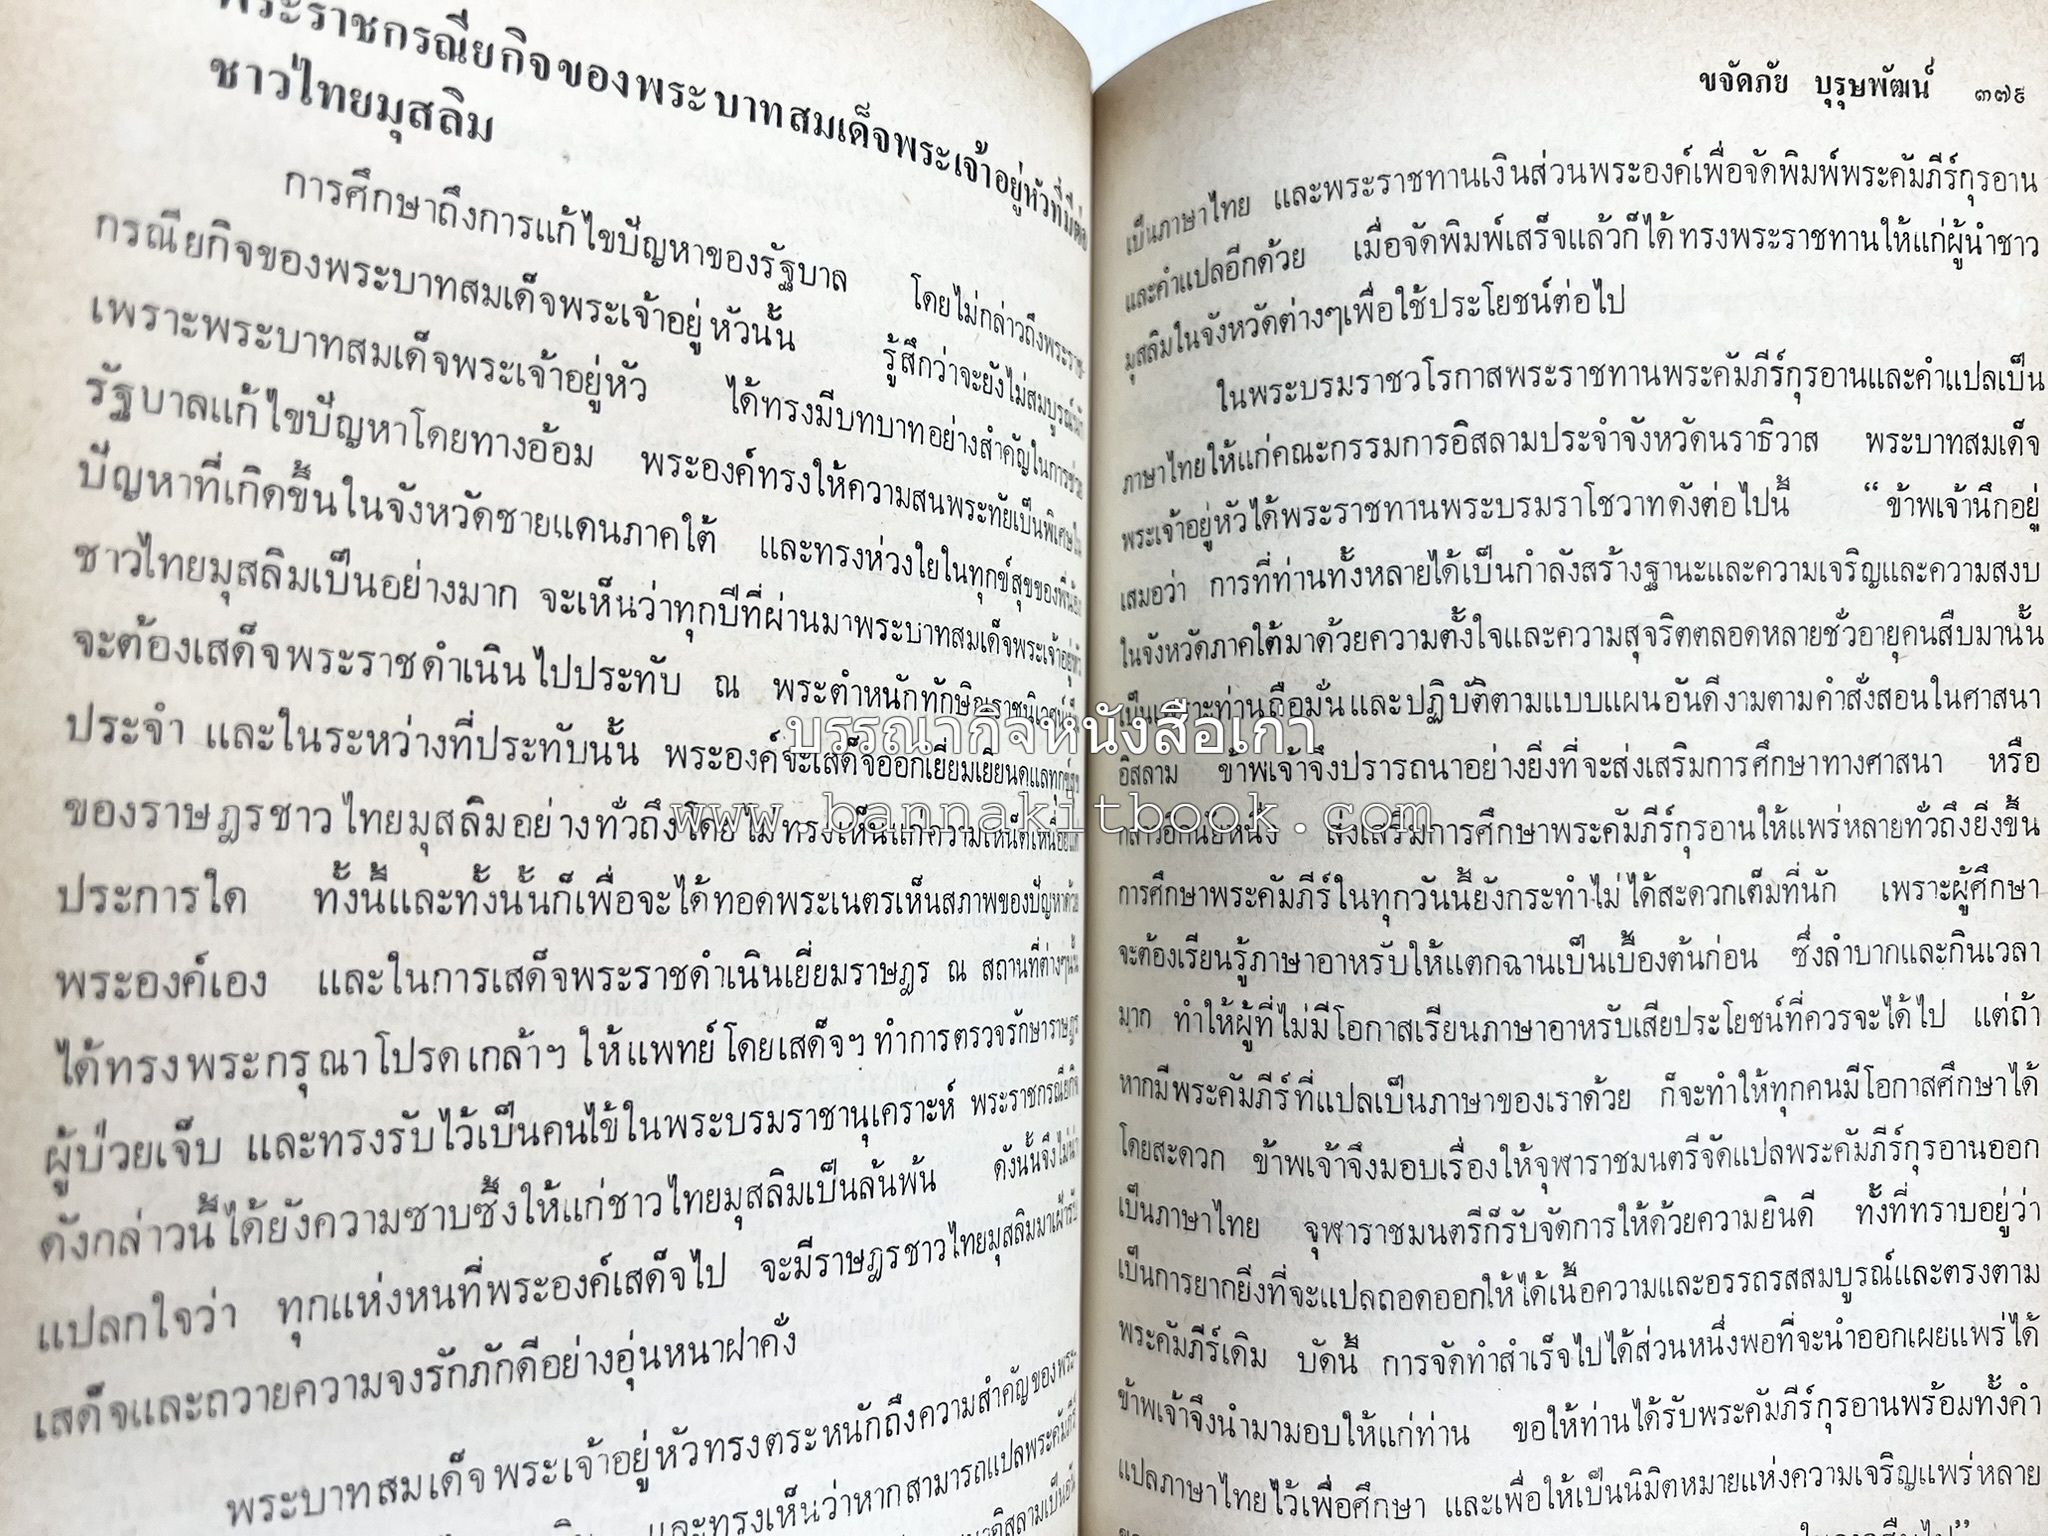 พระราชกรณียกิจของพระบาทสมเด็จพระเจ้าอยู่หัวที่มีต่อ
ชาวไทยมุสลิม
การศึกษาถึงการแก้ไขปัญหาของรัฐบาล โดยไม่กล่าวถึงพระราช-
กรณียกิจของพระบาทสมเด็จพระเจ้าอยู่หัวนั้น รู้สึกว่าจะยังไม่สมบูรณ์นัก
เพราะพระบาทสมเด็จพระเจ้าอยู่หัว ได้ทรงมีบทบาทอย่างสำคัญในการช่วย
รัฐบาลแก้ไขปัญหาโดยทางอ้อม พระองค์ทรงให้ความสนพระทัยเป็นพิเศษใน
ปัญหาที่เกิดขึ้นในจังหวัดชายแดนภาคใต้ และทรงห่วงใยในทุกข์สุขของพี่น้อง
ชาวไทยมุสลิมเป็นอย่างมาก จะเห็นว่าทุกปีที่ผ่านมาพระบาทสมเด็จพระเจ้าอยู่หัว
จะต้องเสด็จพระราชดำเนินไปประทับ ณ พระตำหนักทักษิณราชนิเวศน์เป็น
ประจำ และในระหว่างที่ประทับนั้น พระองค์จะเสด็จออกเยี่ยมเยียนดูแลทุกข์สุข
ของราษฎรชาวไทยมุสลิมอย่างทั่วถึงโดยไม่ทรงเห็นแก่ความเหน็ดเหนื่อยแต่
ประการใด ทั้งนี้และทั้งนั้นก็เพื่อจะได้ทอดพระเนตรเห็นสภาพของปัญหาด้วย
พระองค์เอง และในการเสด็จพระราชดำเนินเยี่ยมราษฎร ณ สถานที่ต่างๆนั้น
ได้ทรงพระกรุณาโปรดเกล้าฯ ให้แพทย์โดยเสด็จฯ ทำการตรวจรักษาราษฎร
ผู้ป่วยเจ็บ และทรงรับไว้เป็นคนไข้ในพระบรมราชานุเคราะห์ พระราชกรณียกิจ
ดังกล่าวนี้ได้ยังความซาบซึ้งให้แก่ชาวไทยมุสลิมเป็นล้นพ้น ดังนั้นจึงไม่น่า
แปลกใจว่า ทุกแห่งหนที่พระองค์เสด็จไป จะมีราษฎรชาวไทยมุสลิมมาเฝ้ารับ
เสด็จและถวายความจงรักภักดีอย่างอุ่นหนาฝาคั่ง
พระบาทสมเด็จพระเจ้าอยู่หัวทรงตระหนักถึงความสำคัญของพระ-
และทรงเห็นว่าหากสามารถแปลพระคัมภีร์
ขจัดภัย บุรุษพัฒน์ ๓๗๙
เป็นภาษาไทย และพระราชทานเงินส่วนพระองค์เพื่อจัดพิมพ์พระคัมภีร์กุรอาน
และคำแปลอีกด้วย เมื่อจัดพิมพ์เสร็จแล้วก็ได้ทรงพระราชทานให้แก่ผู้นำชาว
มุสลิมในจังหวัดต่างๆเพื่อใช้ประโยชน์ต่อไป
ในพระบรมราชวโรกาสพระราชทานพระคัมภีร์กุรอานและคำแปลเป็น
ภาษาไทยให้แก่คณะกรรมการอิสลามประจำจังหวัดนราธิวาส พระบาทสมเด็จ
พระเจ้าอยู่หัวได้พระราชทานพระบรมราโชวาทดังต่อไปนี้ “ข้าพเจ้านึกอยู่
เสมอว่า การที่ท่านทั้งหลายได้เป็นกำลังสร้างฐานะและความเจริญและความสงบ
ในจังหวัดภาคใต้มาด้วยความตั้งใจและความสุจริตตลอดหลายชั่วอายุคนสืบมานั้น
เป็นเพราะท่านถือมั่นและปฏิบัติตามแบบแผนอันดีงามตามคำสั่งสอนในศาสนา
บรรณากิจหนังสือเก่า
อิสลาม ข้าพเจ้าจึงปรารถนาอย่างยิ่งที่จะส่งเสริมการศึกษาทางศาสนา หรือ
www.bannakitbook.com
กล่าวอีกนัยหนึ่ง ส่งเสริมการศึกษาพระคัมภีร์กุรอานให้แพร่หลายทั่วถึงยิ่งขึ้น
การศึกษาพระคัมภีร์ในทุกวันนี้ยังกระทำไม่ได้สะดวกเต็มที่นัก เพราะผู้ศึกษา
จะต้องเรียนรู้ภาษาอาหรับให้แตกฉานเป็นเบื้องต้นก่อน ซึ่งลำบากและกินเวลา
มาก ทำให้ผู้ที่ไม่มีโอกาสเรียนภาษาอาหรับเสียประโยชน์ที่ควรจะได้ไป แต่ถ้า
หากมีพระคัมภีร์ที่แปลเป็นภาษาของเราด้วย ก็จะทำให้ทุกคนมีโอกาสศึกษาได้
โดยสะดวก ข้าพเจ้าจึงมอบเรื่องให้จุฬาราชมนตรีจัดแปลพระคัมภีร์กุรอานออก
เป็นภาษาไทย จุฬาราชมนตรีก็รับจัดการให้ด้วยความยินดี ทั้งที่ทราบอยู่ว่า
เป็นการยากยิ่งที่จะแปลถอดออกให้ได้เนื้อความและอรรถรสสมบูรณ์และตรงตาม
พระคัมภีร์เดิม บัดนี้ การจัดทำสำเร็จไปได้ส่วนหนึ่งพอที่จะนำออกเผยแพร่ได้
ข้าพเจ้าจึงนำมามอบให้แก่ท่าน ขอให้ท่านได้รับพระคัมภีร์กุรอานพร้อมทั้งคำ
แปลภาษาไทยไว้เพื่อศึกษา และเพื่อให้เป็นนิมิตหมายแห่งความเจริญแพร่หลาย